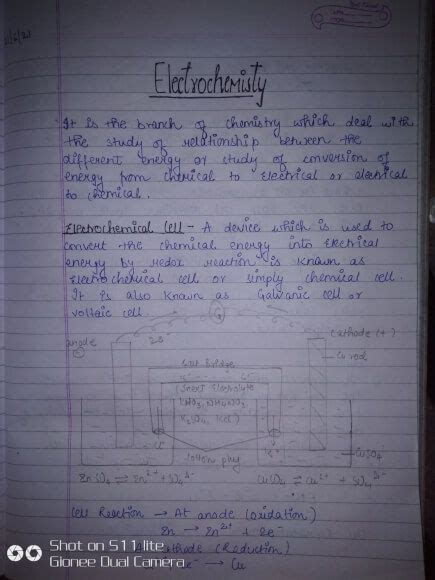 Electrochemisty
It is the branch of chemistry which deal with
the study of relationship between the
different energy or study of conversion of
energy from chemical to electrical or electrical
to chemical.
Electrochemical Cell - A device which is used to
convert the chemical energy into Electrical
energy by redox reaction is known as
Electrochemical cell or simply chemical cell.
It is also known as Galvanic cell or
voltaic cell.
anode
2e-
cathode (+)
Cu rod
Salt Bridge
Inert Electrolyte
KNO3, NH4NO3
K2SO4, KCl
CuSO4
cotton plug
ZnSO4 ⇌ Zn2+ + SO4 2-
CuSO4 ⇌ Cu2+ + SO4 2-
Cell Reaction → At anode (oxidation)
Zn → Zn2+ + 2e-
cathode (Reduction)
e- → Cu
Shot on S11 lite
Gionee Dual Camera